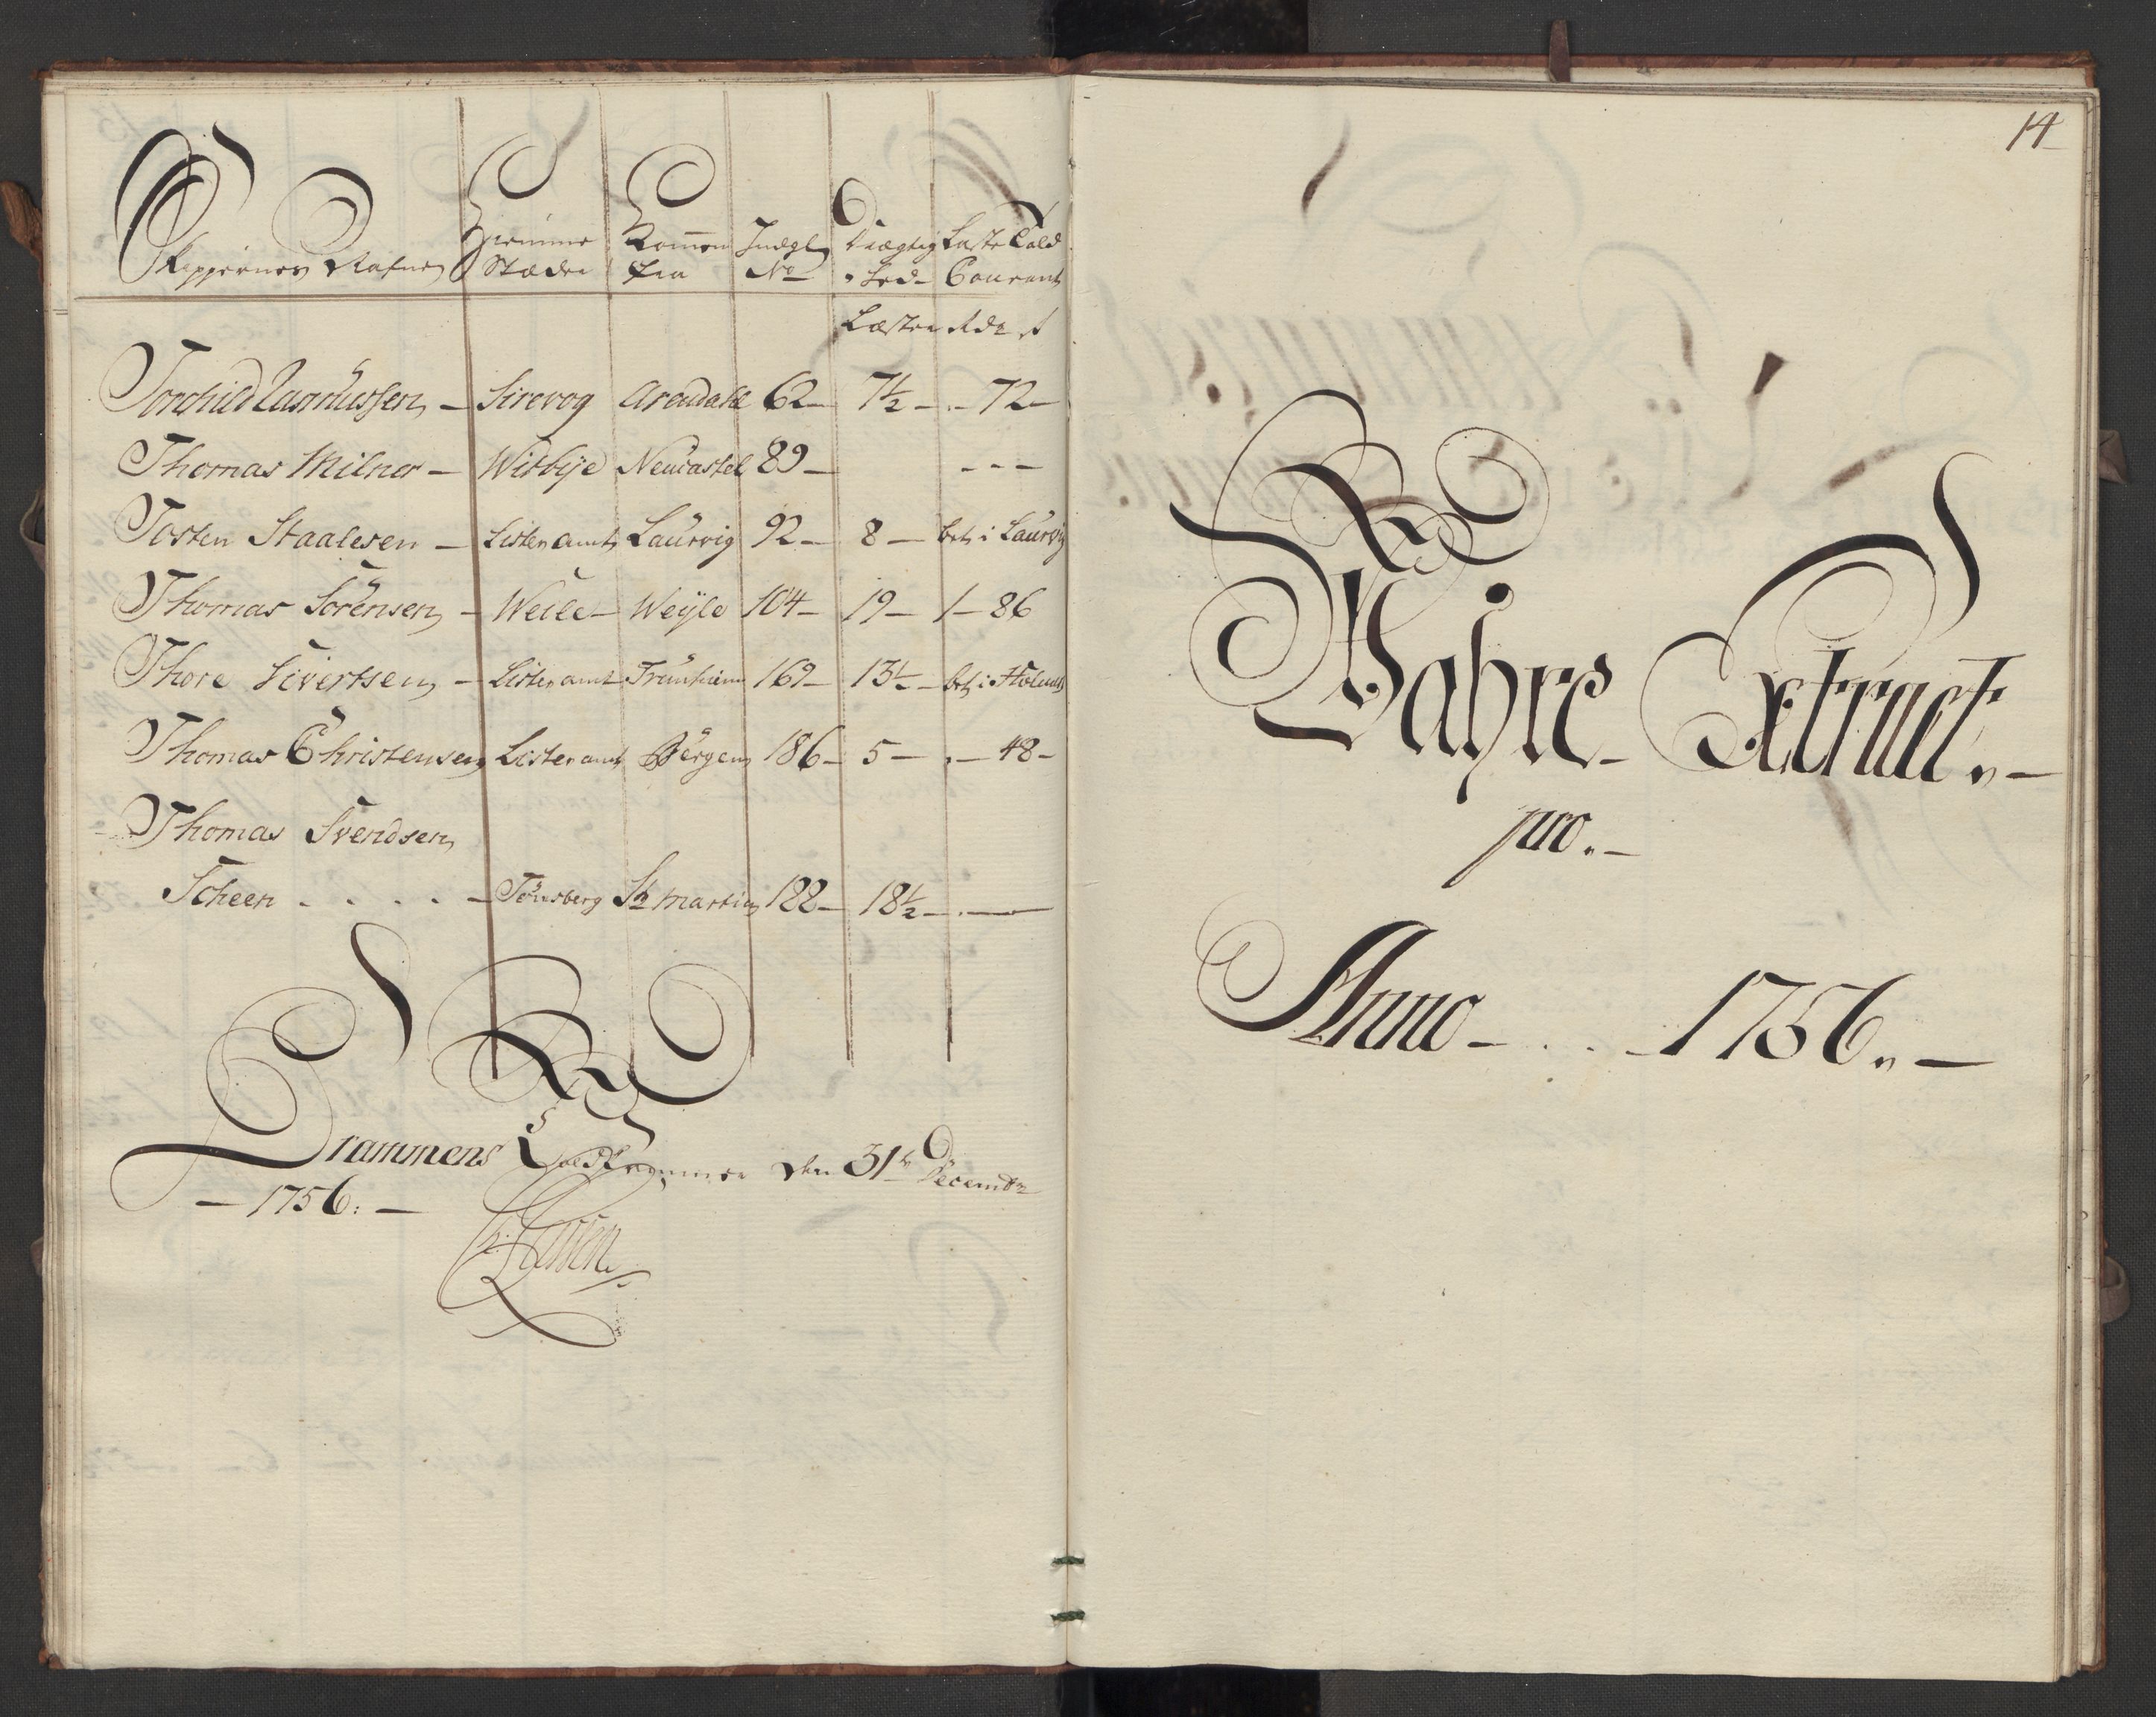 Skippernes Nafne Hiemme Stæder Kommen fra Indgl No Drægtighed Læste Told Courant
Læster Rdr s
Torchild Rasmussen – Sirevog Arendahl 62 – 7½ – . – 72 –
Thomas Milner – Witbÿe Neucastel 89 – - - -
Tosten Staalesen – Lister amt Laurvig 92 – 8 – bet: i Laurvig
Thomas Sörensen – Weile – Weÿle 104 – 19 – 1 – 86
Thore Sivertsen – Lister amt Trunhiem 169 – 13½ – bet: i
Thomas Christensen Lister amt Bergen 186 – 5 – . – 48 –
Thomas Svendsen
Scheen . . . . – Tönsberg St Martin 188 – 18½ – . —
Drammens Toldkammer den 31te Decembr
– 1756: –
14
Wahre Extract. –
pro. –
Anno – . . . 1756. –